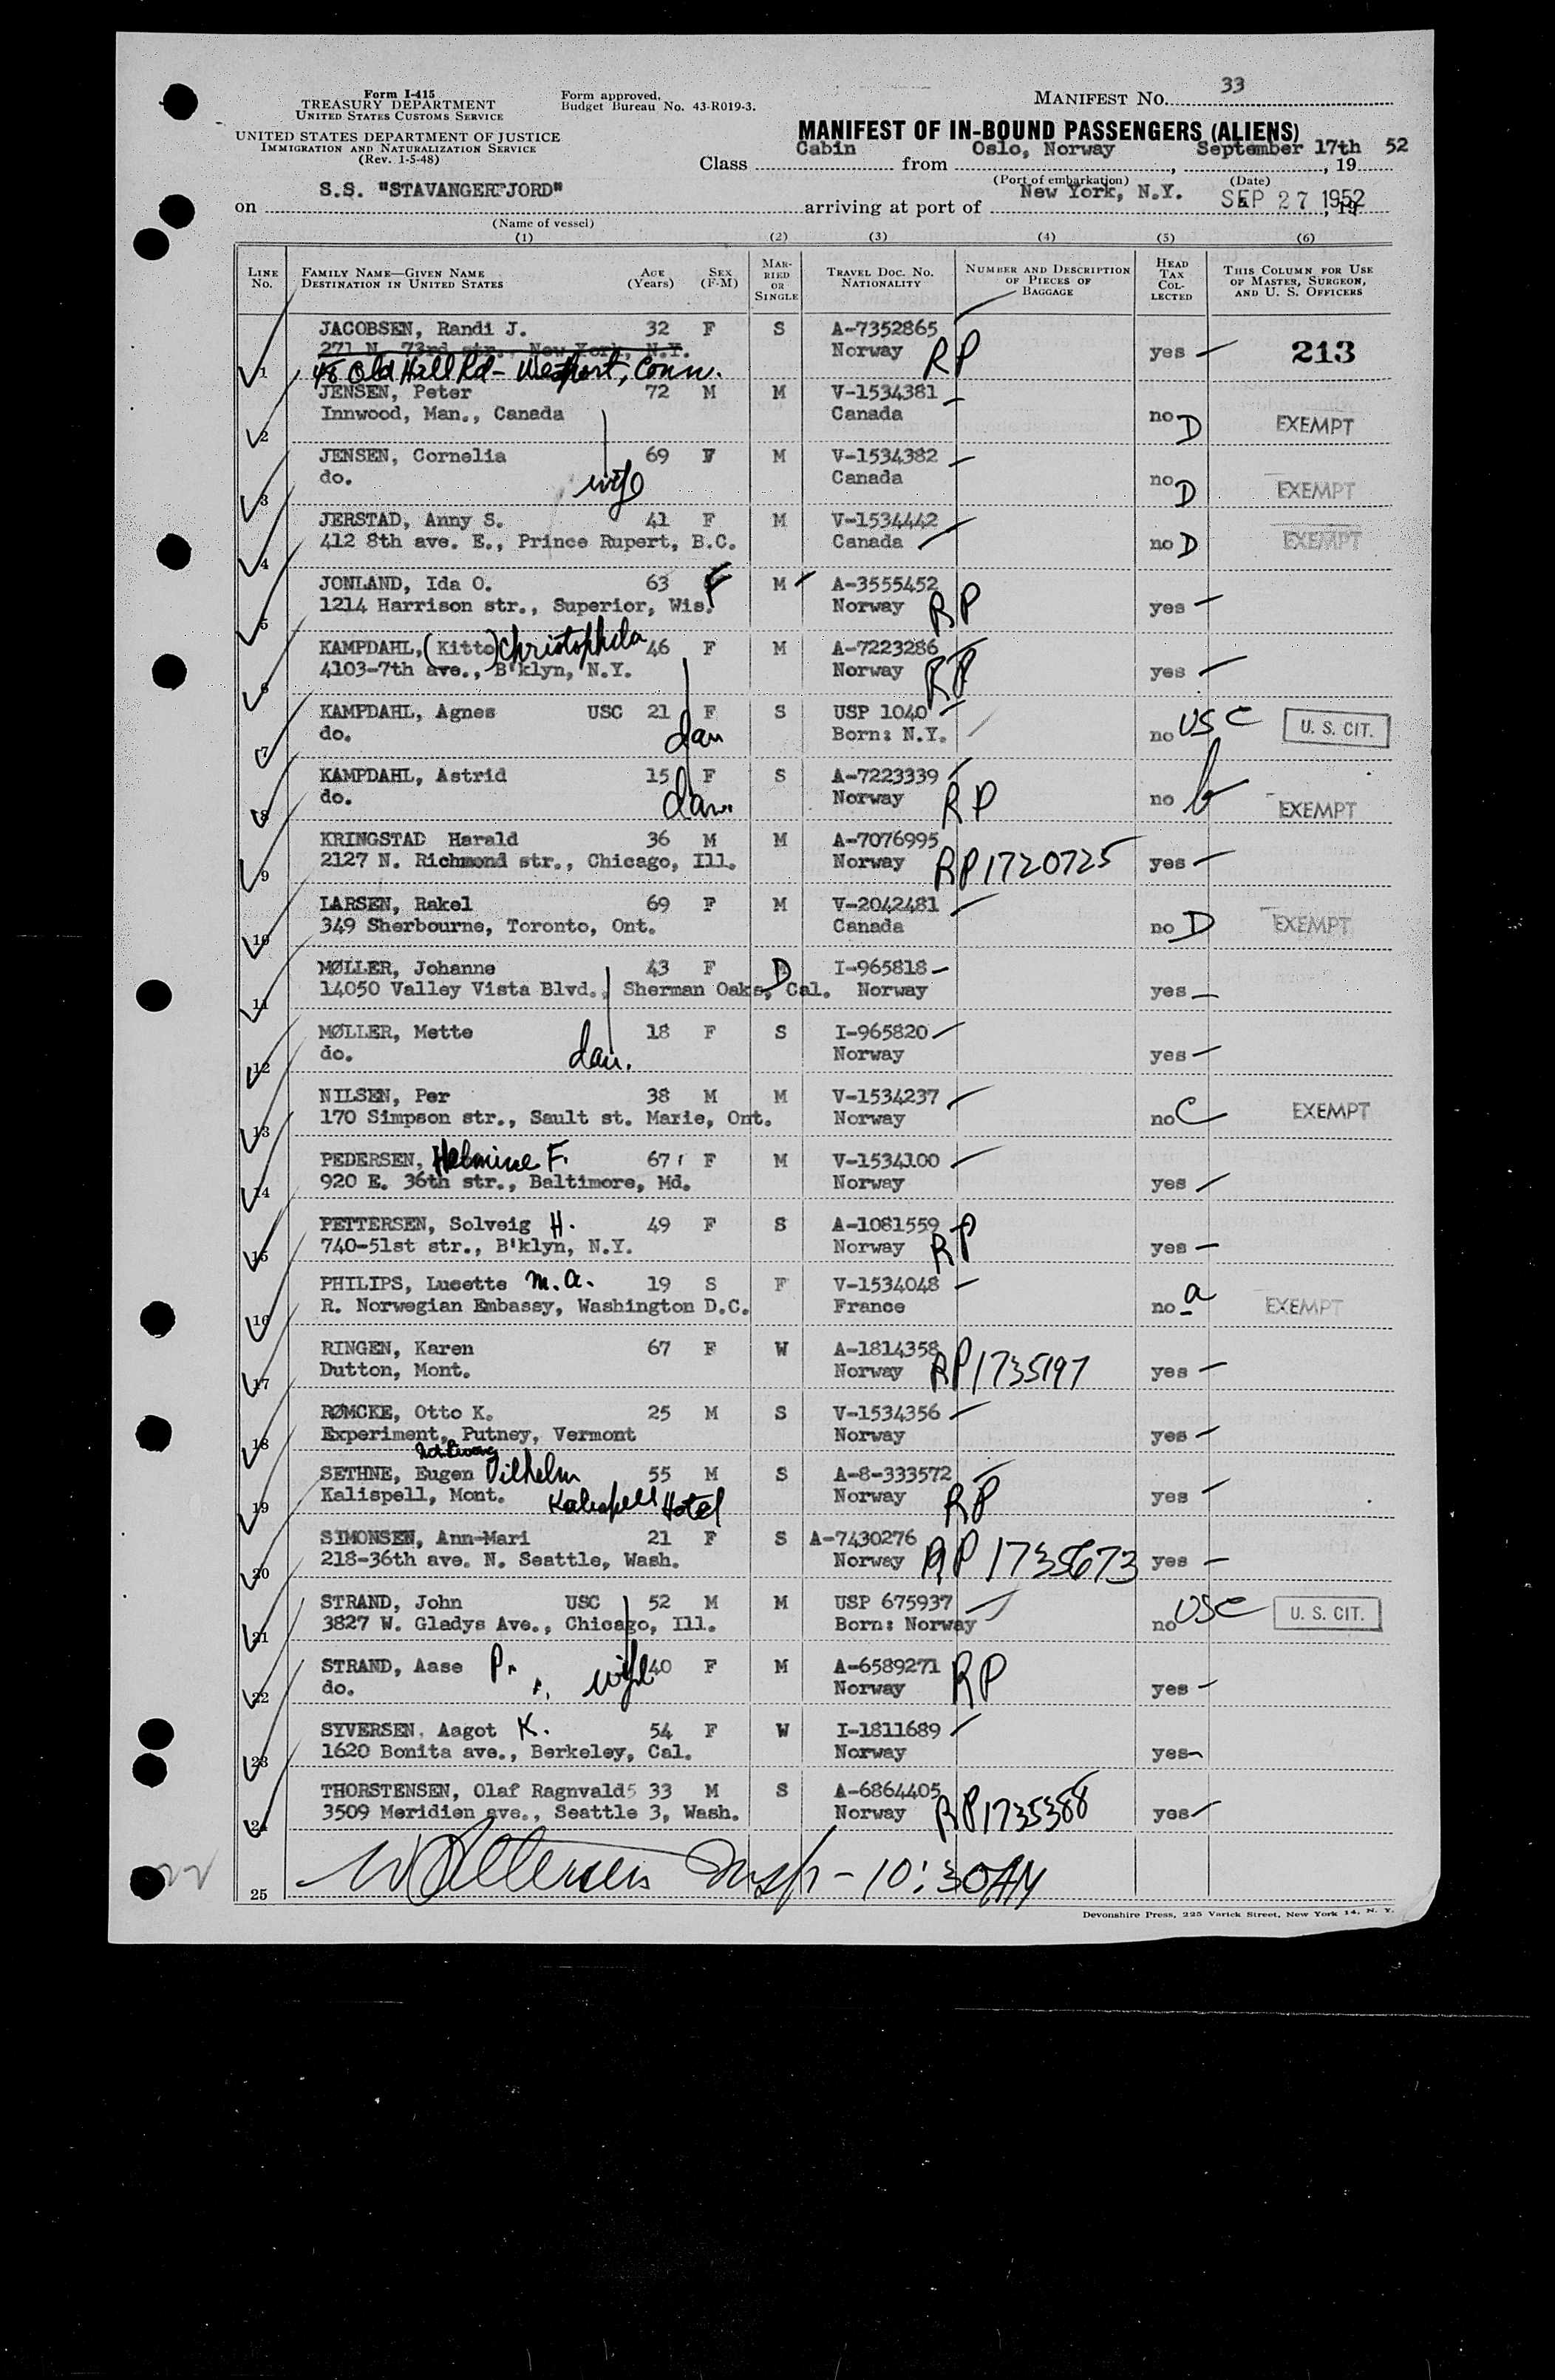 Form I-415
TREASURY DEPARTMENT
UNITED STATES CUSTOMS SERVICE
UNITED STATES DEPARTMENT OF JUSTICE
IMMIGRATION AND NATURALIZATION SERVICE
(Rev. 1-5-48)
Form approved.
Budget Bureau No. 43-R019-3.
MANIFEST NO. 33
MANIFEST OF IN-BOUND PASSENGERS (ALIENS)
Class Cabin from Oslo, Norway, September 17th, 19 52
(Port of embarkation) (Date)
on S.S. "STAVANGERFJORD" arriving at port of New York, N.Y. SEP 27 1952, 19
(Name of vessel)
(1) (2) (3) (4) (5) (6)
LINE No. FAMILY NAME—GIVEN NAME DESTINATION IN UNITED STATES AGE (Years) SEX (F-M) MARRIED OR SINGLE TRAVEL DOC. NO. NATIONALITY NUMBER AND DESCRIPTION OF PIECES OF BAGGAGE HEAD TAX COLLECTED THIS COLUMN FOR USE OF MASTER, SURGEON, AND U. S. OFFICERS
1 JACOBSEN, Randi J. 32 F S A-7352865
271 N. 73rd str., New York, N.Y. Norway RP yes 213
48 Old Hill Rd - Westport, Conn.
2 JENSEN, Peter 72 M M V-1534381
Innwood, Man., Canada Canada no D EXEMPT
3 JENSEN, Cornelia 69 F M V-1534382
do. wife Canada no D EXEMPT
4 JERSTAD, Anny S. 41 F M V-1534442
412 8th ave. E., Prince Rupert, B.C. Canada no D EXEMPT
5 JONLAND, Ida O. 63 F M A-3555452
1214 Harrison str., Superior, Wis. Norway RP yes
6 KAMPDAHL, (Kitto) Christophela 46 F M A-7223286
4103-7th ave., B'klyn, N.Y. Norway RP yes
7 KAMPDAHL, Agnes USC 21 F S USP 1040
do. dau Born: N.Y. no USC U. S. CIT.
8 KAMPDAHL, Astrid 15 F S A-7223339
do. dau. Norway RP no b EXEMPT
9 KRINGSTAD Harald 36 M M A-7076995
2127 N. Richmond str., Chicago, Ill. Norway RP1720725 yes
10 LARSEN, Rakel 69 F M V-2042481
349 Sherbourne, Toronto, Ont. Canada no D EXEMPT
11 MØLLER, Johanne 43 F D I-965818
14050 Valley Vista Blvd., Sherman Oaks, Cal. Norway yes
12 MØLLER, Mette 18 F S I-965820
do. dau. Norway yes
13 NILSEN, Per 38 M M V-1534237
170 Simpson str., Sault st. Marie, Ont. Norway no C EXEMPT
14 PEDERSEN, Helmine F. 67 F M V-1534100
920 E. 36th str., Baltimore, Md. Norway yes
15 PETTERSEN, Solveig H. 49 F S A-1081559
740-51st str., B'klyn, N.Y. Norway RP yes
16 PHILIPS, Lucette M. A. 19 S F V-1534048
R. Norwegian Embassy, Washington D.C. France no a EXEMPT
17 RINGEN, Karen 67 F W A-1814358
Dutton, Mont. Norway RP1735197 yes
18 RØMCKE, Otto K. 25 M S V-1534356
Experiment, Putney, Vermont Norway yes
19 SETHNE, Eugen Vilhelm 55 M S A-8-333572
Kalispell, Mont. Kalispell Hotel Norway RP yes
20 SIMONSEN, Ann-Mari 21 F S A-7430276
218-36th ave. N. Seattle, Wash. Norway RP 1735673 yes
21 STRAND, John USC 52 M M USP 675937
3827 W. Gladys Ave., Chicago, Ill. Born: Norway no USC U. S. CIT.
22 STRAND, Aase P. wife 40 F M A-6589271
do. Norway RP yes
23 SYVERSEN, Aagot K. 54 F W I-1811689
1620 Bonita ave., Berkeley, Cal. Norway yes
24 THORSTENSEN, Olaf Ragnvald 33 M S A-6864405
3509 Meridien ave., Seattle 3, Wash. Norway RP1735388 yes
25 Insp - 10:30AM
Devonshire Press, 225 Varick Street, New York 14, N. Y.